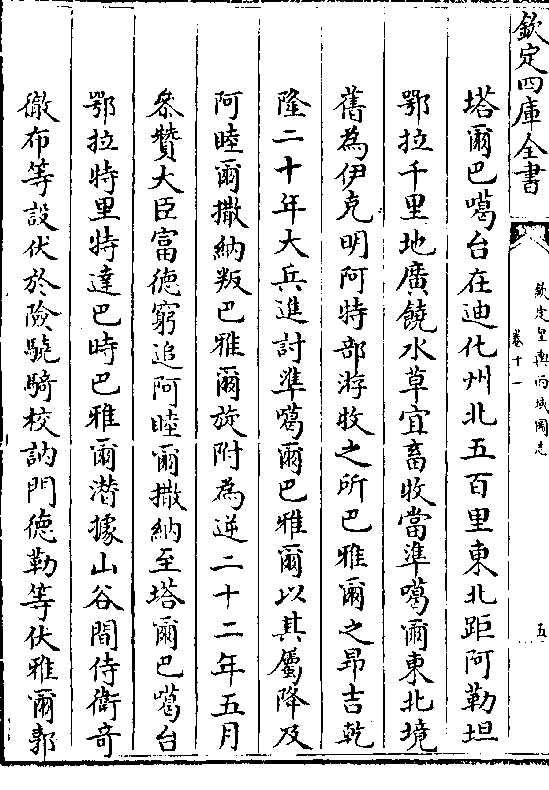 欽定四庫全書
欽定皇輿西域圖志
卷十一
五
塔爾巴噶台在迪化州北五百里東北距阿勒坦
鄂拉千里地廣饒水草宜畜牧當準噶爾東北境
舊為伊克明阿特部游牧之所巴雅爾之昂吉乾
隆二十年大兵進討準噶爾巴雅爾以其屬降及
阿睦爾撒納叛巴雅爾旋附為逆二十二年五月
叅贊大臣富德窮追阿睦爾撒納至塔爾巴噶台
鄂拉特里特達巴時巴雅爾潛據山谷間侍衛奇
徹布等設伏於險驍騎校訥門德勒等伏雅爾郭